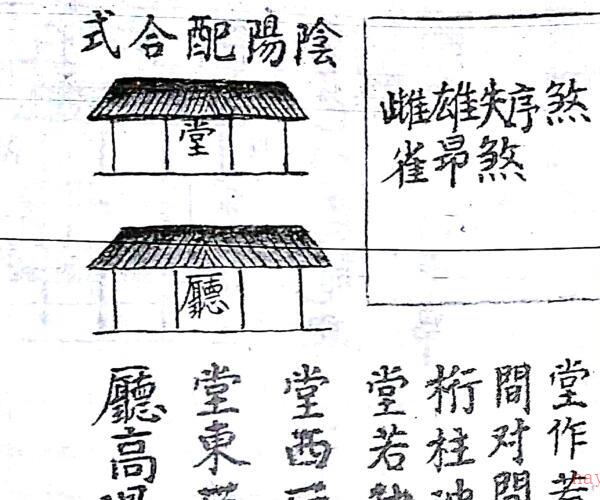 陰陽配合式
堂
廳
雌雄失序煞
雀昂煞
堂作若
間对間
桁柱
堂若
堂西
堂東
廳高